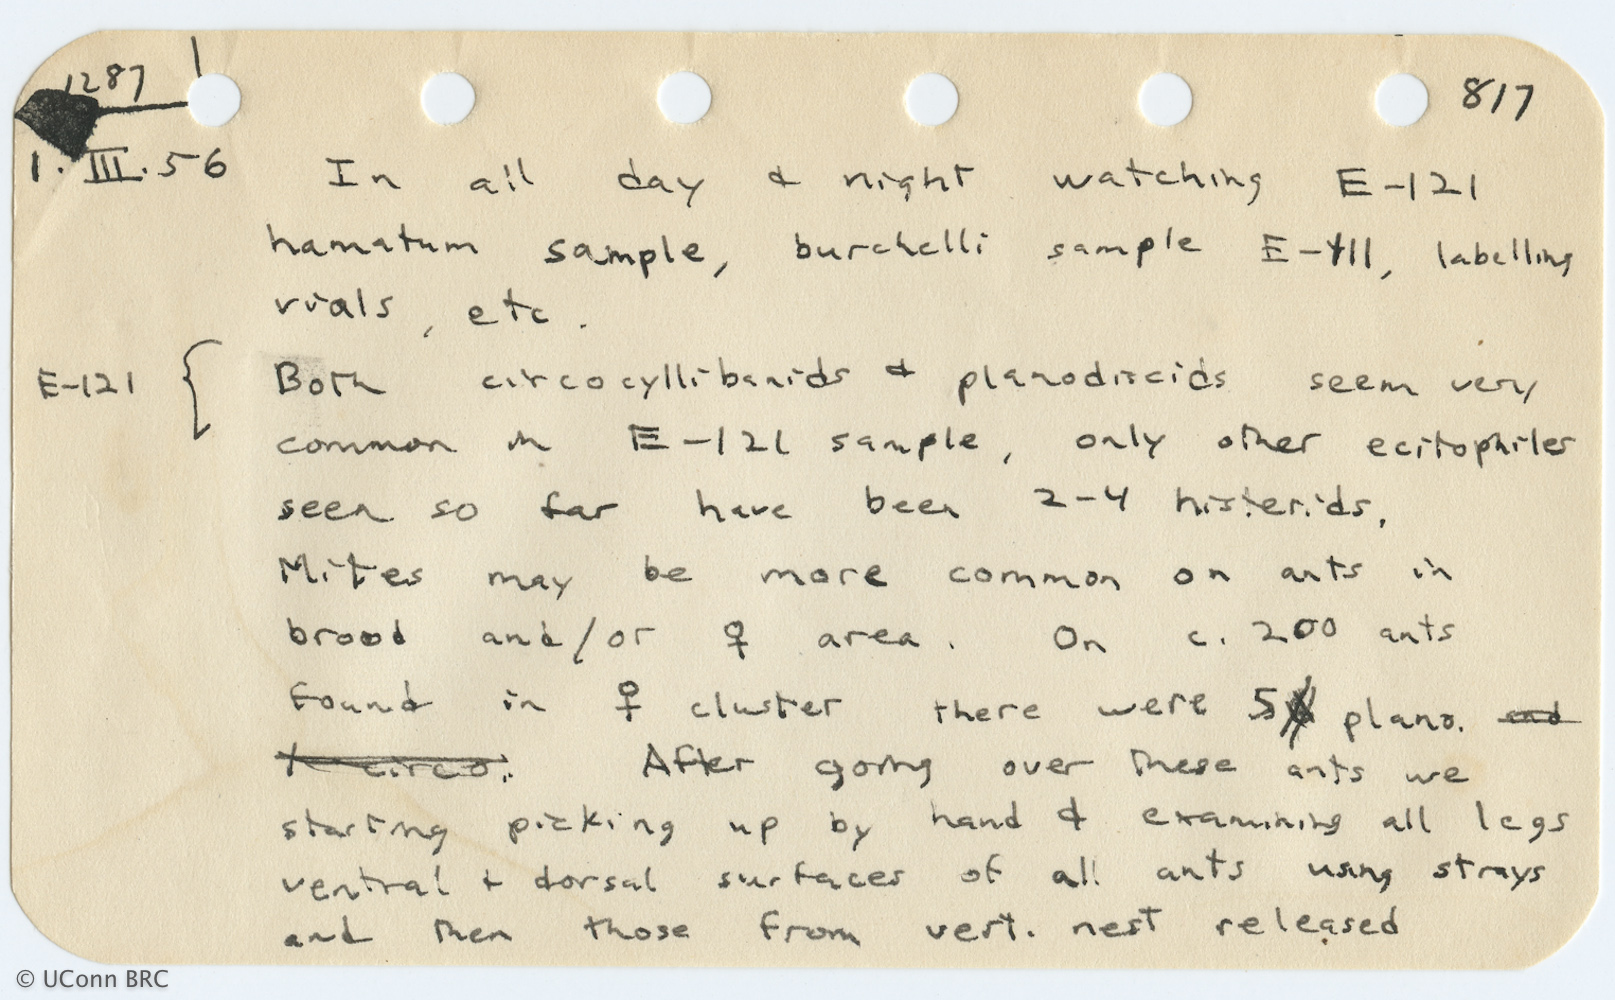 1287
817
1. III. 56 In all day & night watching E-121
hamatum sample, burchelli sample E-411, labelling
vials, etc.
E-121 { Both circocyllibanids & planodiscids seem very
common in E-121 sample, only other ecitophiles
seen so far have been 2-4 histerids.
Mites may be more common on ants in
brood and/or ♀ area. On c. 200 ants
found in ♀ cluster there were 5 plano. and
1 circo. After going over these ants we
starting picking up by hand & examining all legs
ventral & dorsal surfaces of all ants using strays
and then those from vert. nest released
© UConn BRC